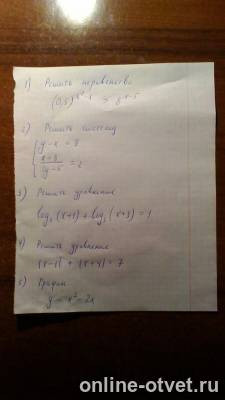 1) Решить неравенство
(0,5)
2) Решить систему
y-x=8
=2
3) Решить уравнение
log₃(x+1)+log₃(x+3)=1
4) Решить уравнение
|x-1|+|x+4|=7
5) График
y=x²-2x
online-otvet.ru